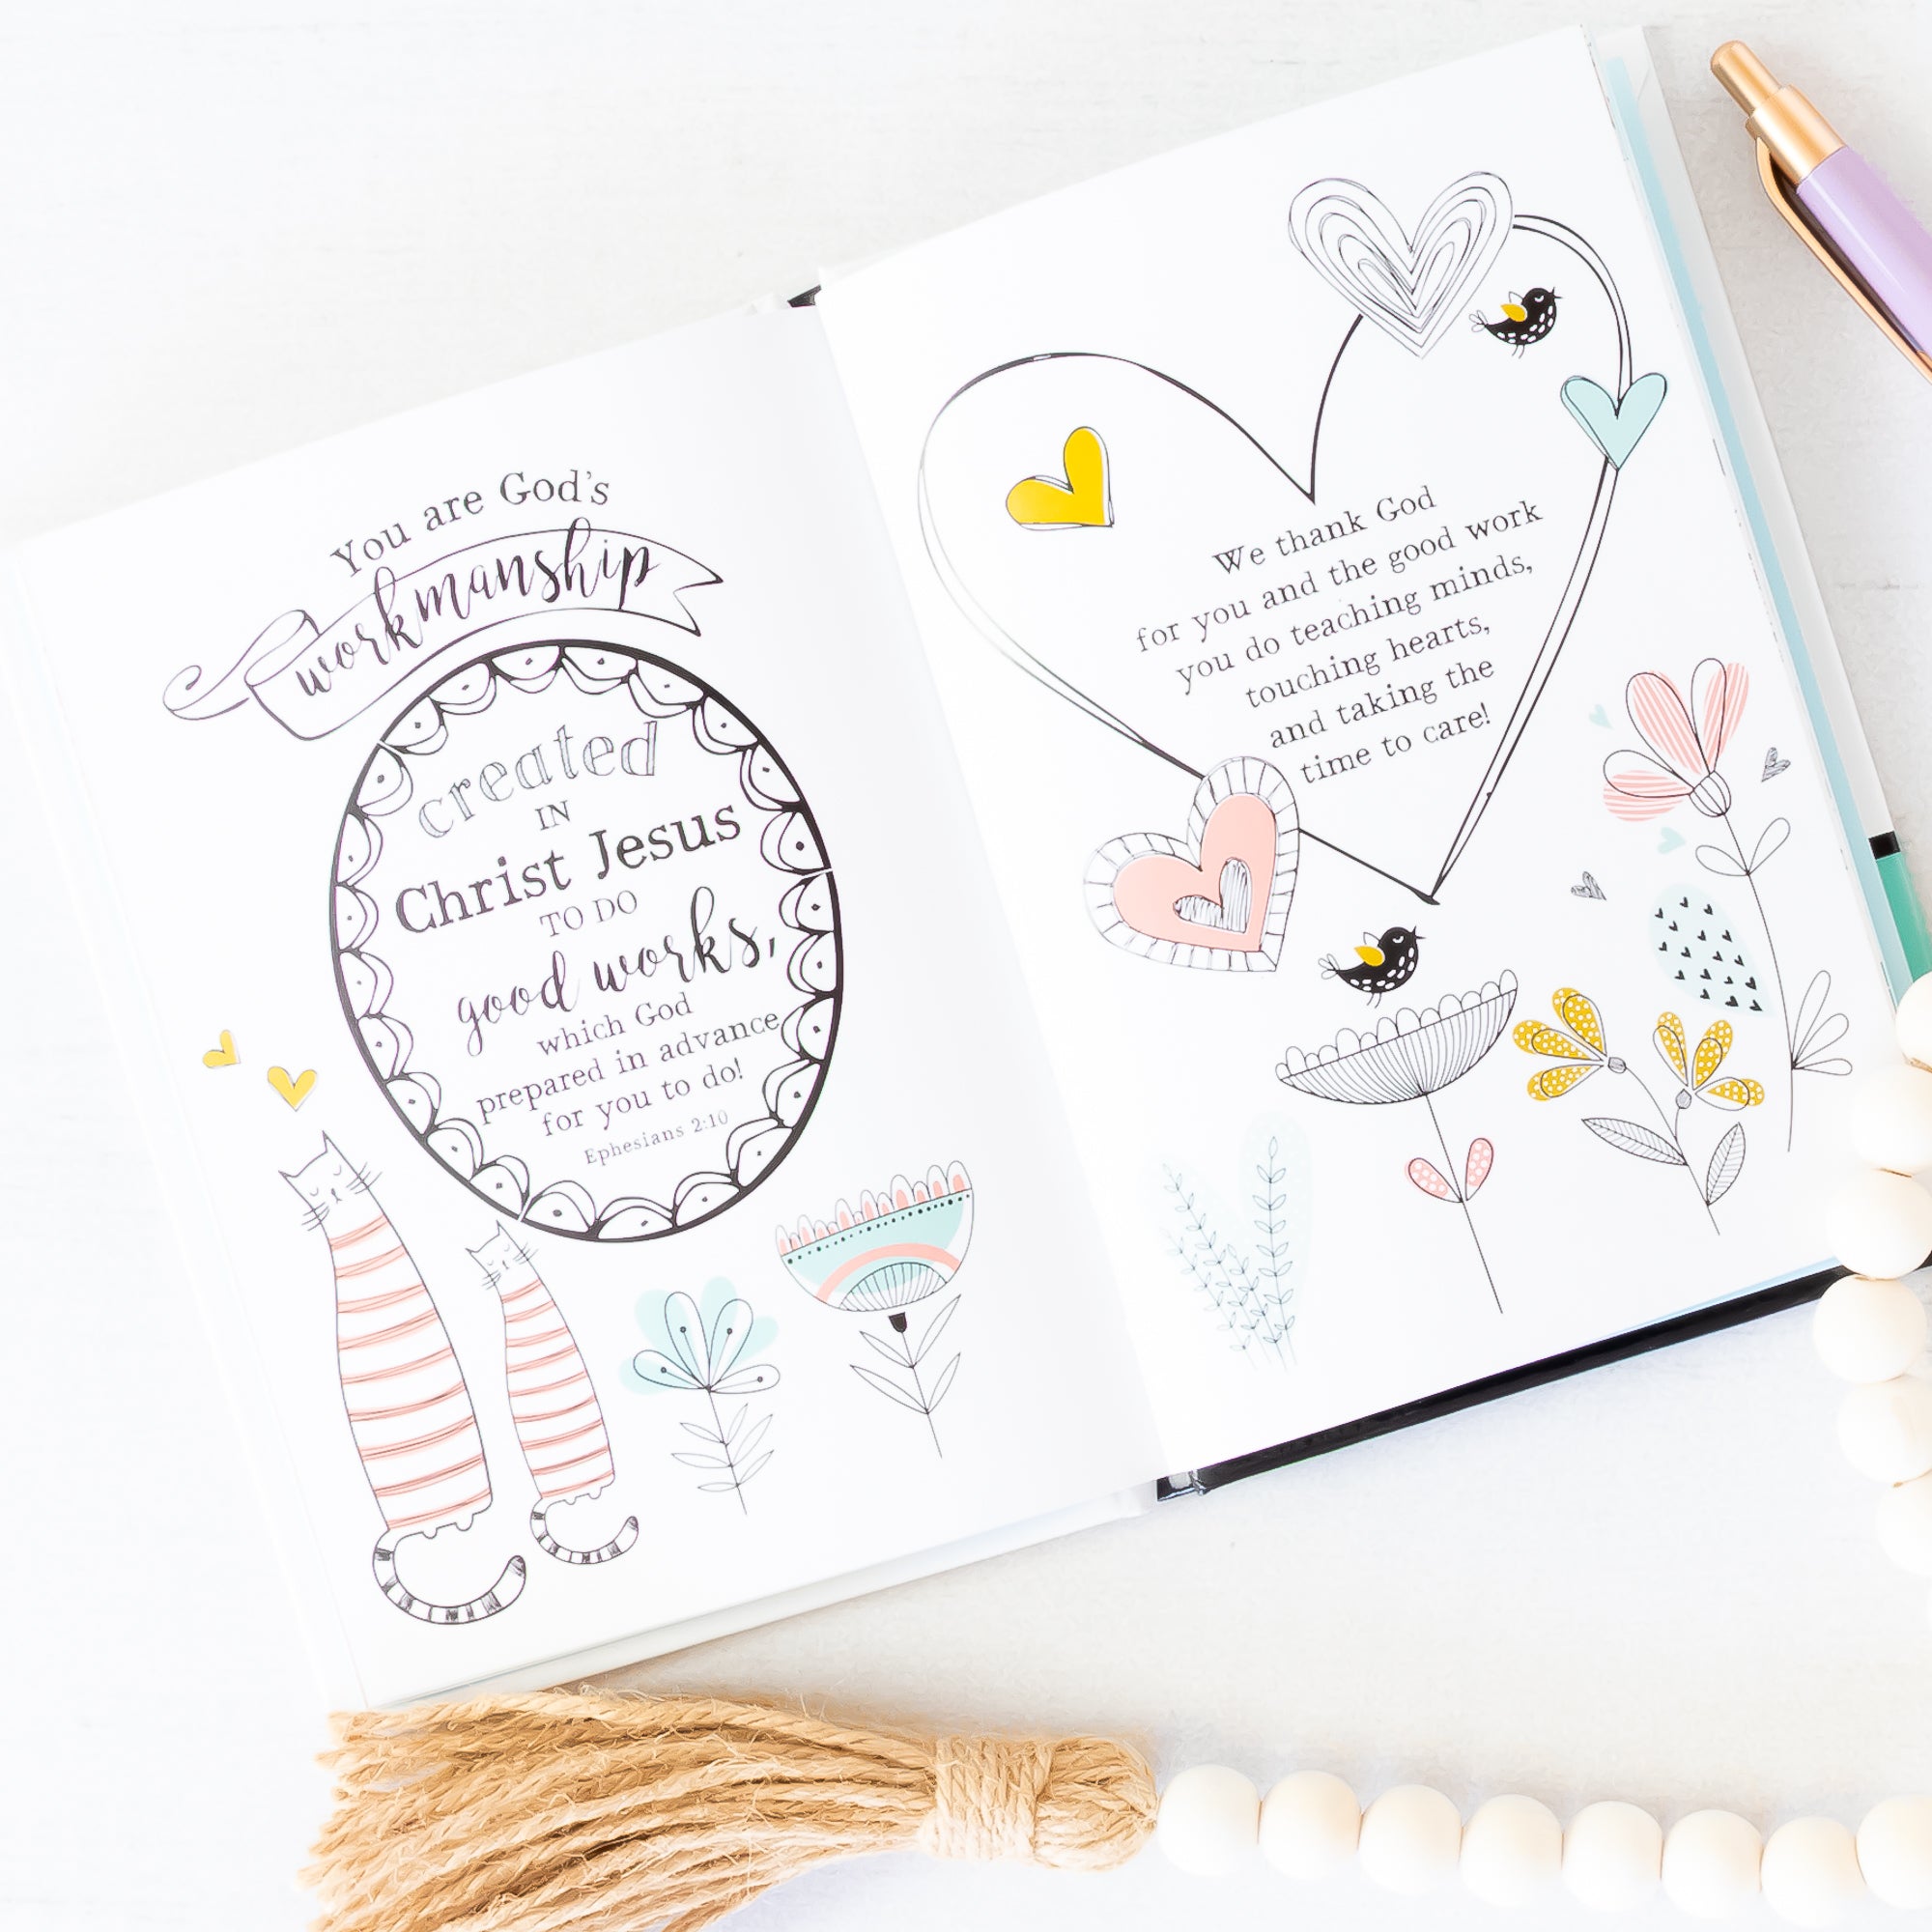 You are God's
workmanship
created
IN
Christ Jesus
TO DO
good works,
which God
prepared in advance
for you to do!
Ephesians 2:10
We thank God
for you and the good work
you do teaching minds,
touching hearts,
and taking the
time to care!